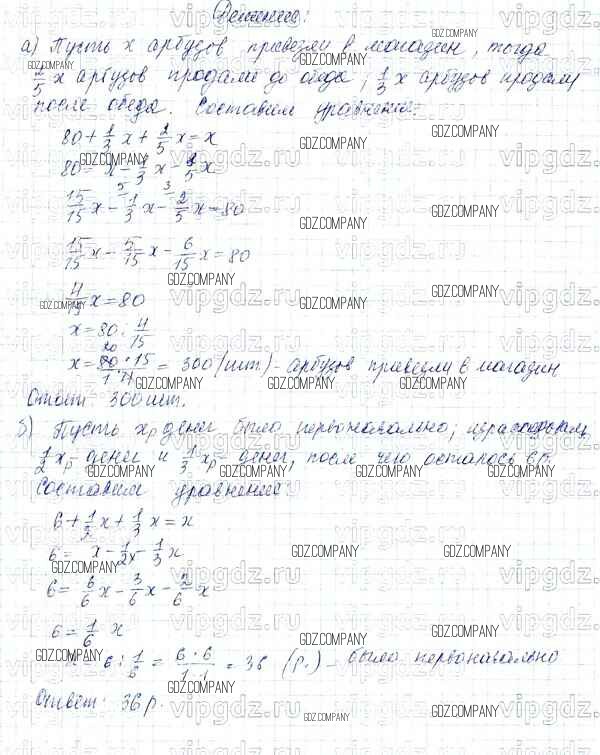 Решение:
а) Пусть x арбузов привезли в магазин, тогда
2/5 x арбузов продали до обеда; 1/3 x арбузов продали
после обеда. Составим уравнение:
80 + 1/3 x + 2/5 x = x
80 = x - 1/3 x - 2/5 x
15/15 x - 1/3 x - 2/5 x = 80
15/15 x - 5/15 x - 6/15 x = 80
4/15 x = 80
x = 80 : 4/15
x = 80 · 15 / 1 · 4 = 300 (шт.) - арбузов привезли в магазин
Ответ 300 шт.
б) Пусть x р денег было первоначально; израсходовали
1/2 x р - денег и 1/3 x р - денег, после чего осталось 6 р.
Составим уравнение:
6 + 1/2 x + 1/3 x = x
6 = x - 1/2 x - 1/3 x
6 = 6/6 x - 3/6 x - 2/6 x
6 = 1/6 x
6 : 1/6 = 6 · 6 / 1 · 1 = 36 (р.) - было первоначально
Ответ: 36 р.
GDZ.COMPANY
vipgdz.ru